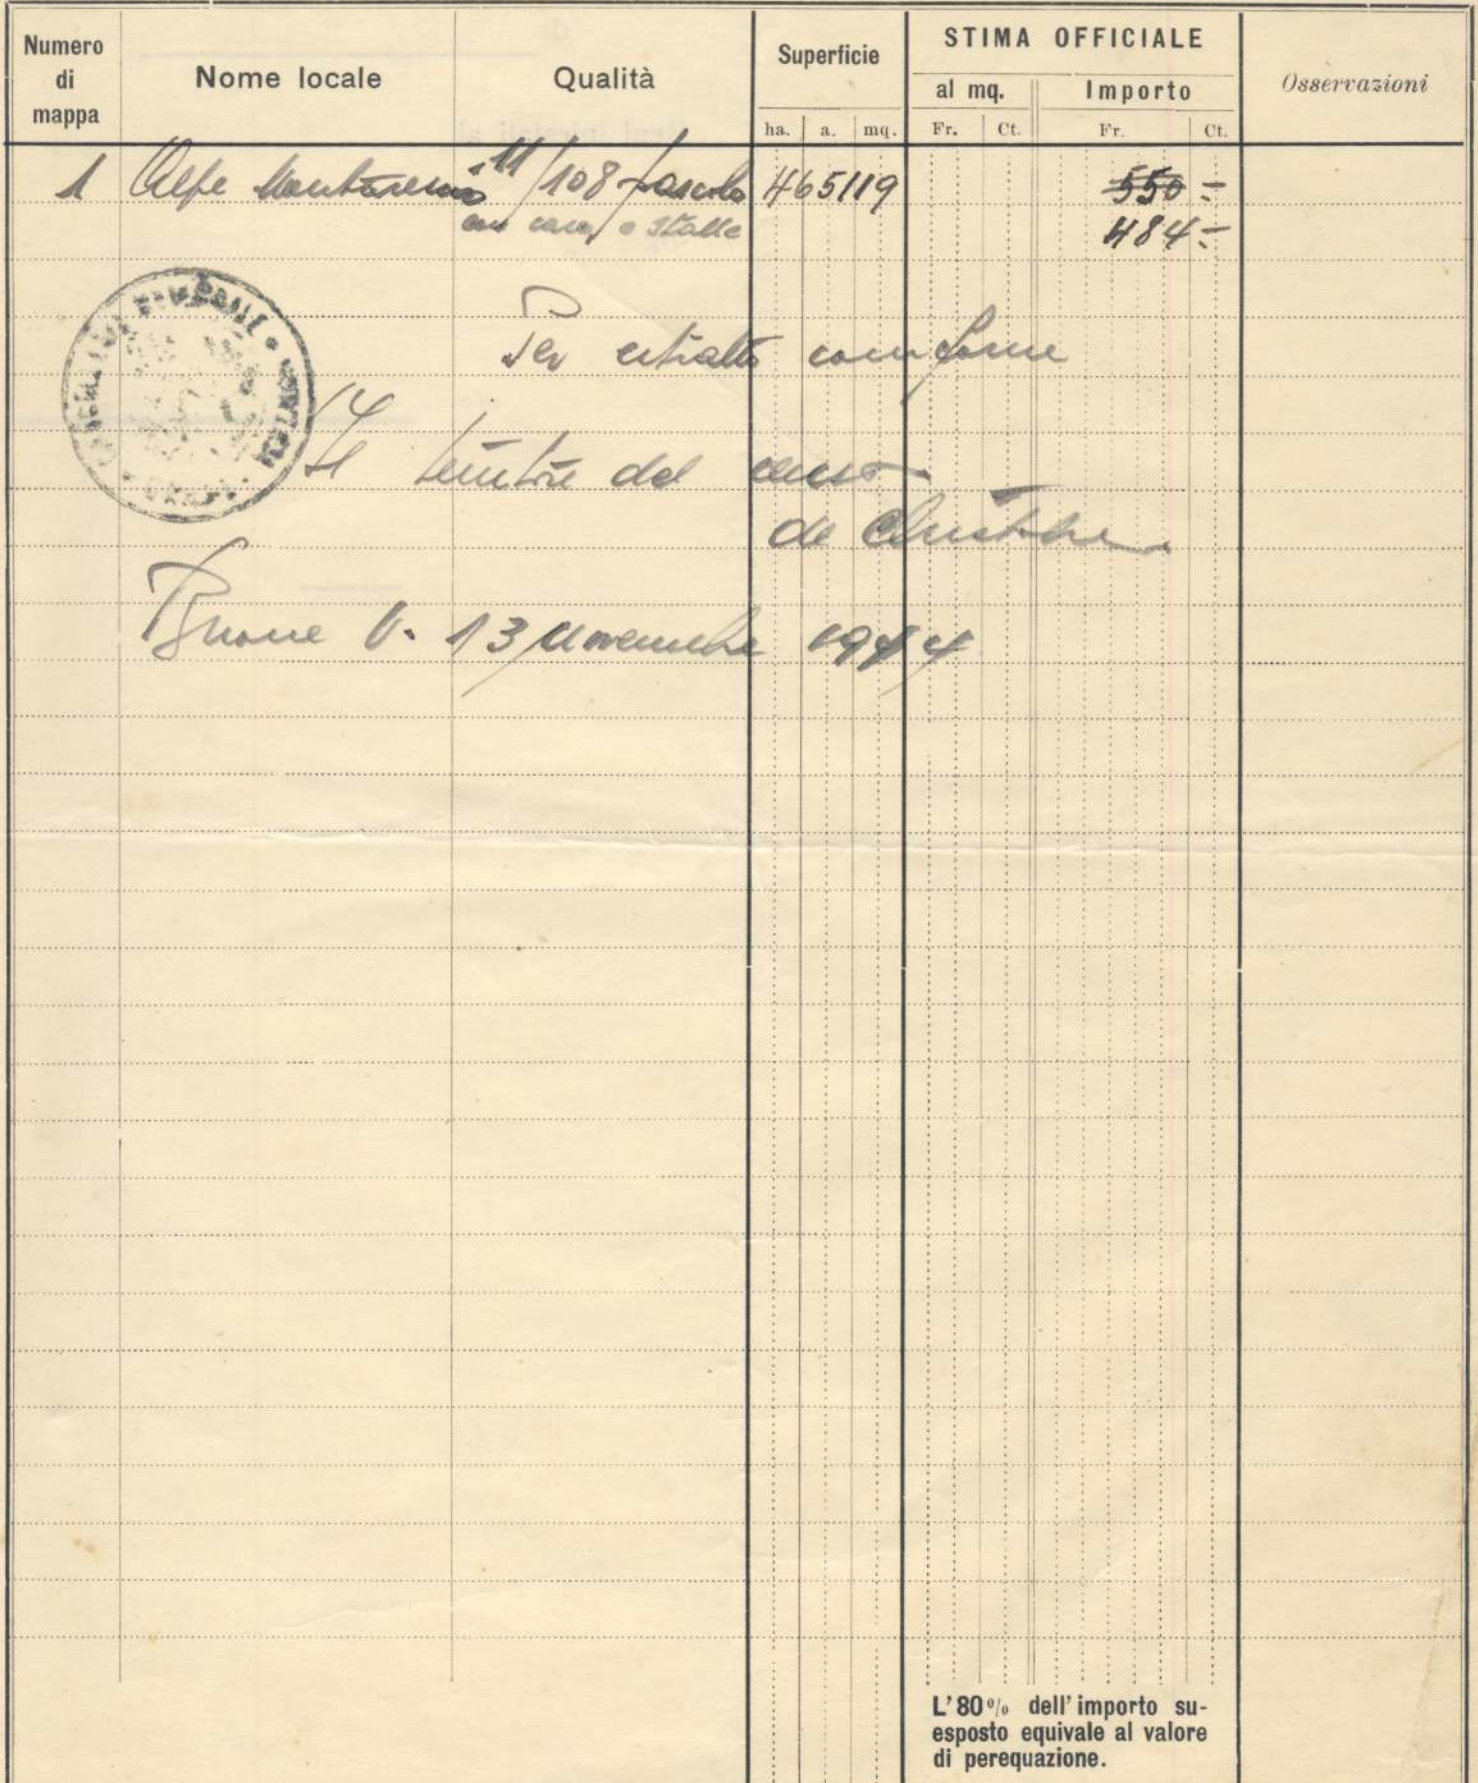 Numero di mappa
Nome locale
Qualità
Superficie
ha. a. mq.
STIMA OFFICIALE
al mq.
Fr. Ct.
Importo
Fr. Ct.
Osservazioni
1 Alpe 11/108 pascolo 465119 550 -
con casa e stalle 484 -
Per estratto conforme
Il tenitore del censo
de
V. 13 novembre 1944
L'80% dell'importo su-
esposto equivale al valore
di perequazione.